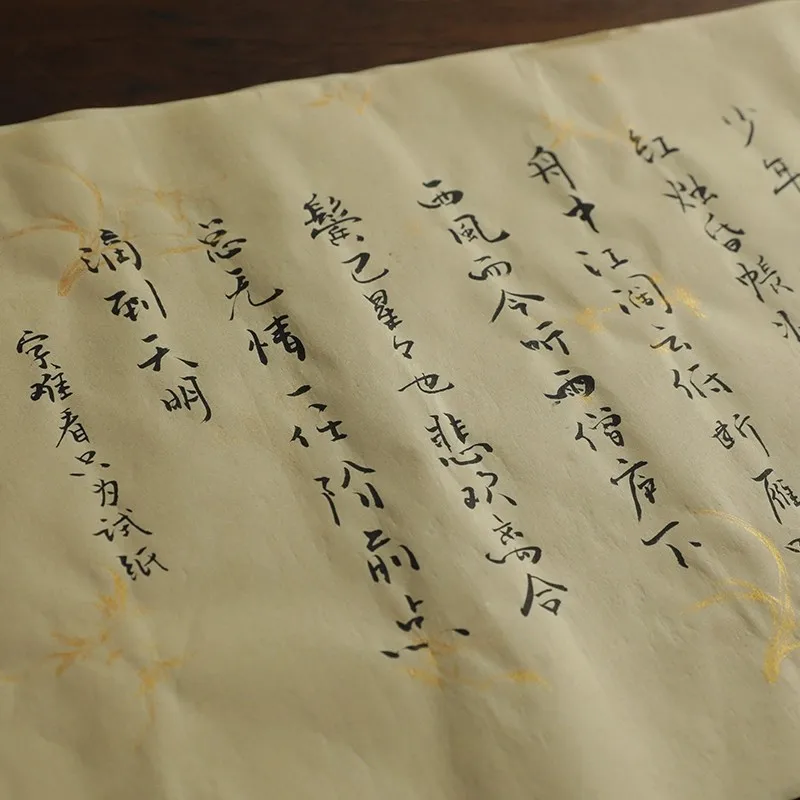 少年
红烛昏帳
舟中江阔云低断雁
西風而今听雨僧庐下
鬓已星々也悲欢离合
总无情一任阶前点
滴到天明
字难看只为试纸